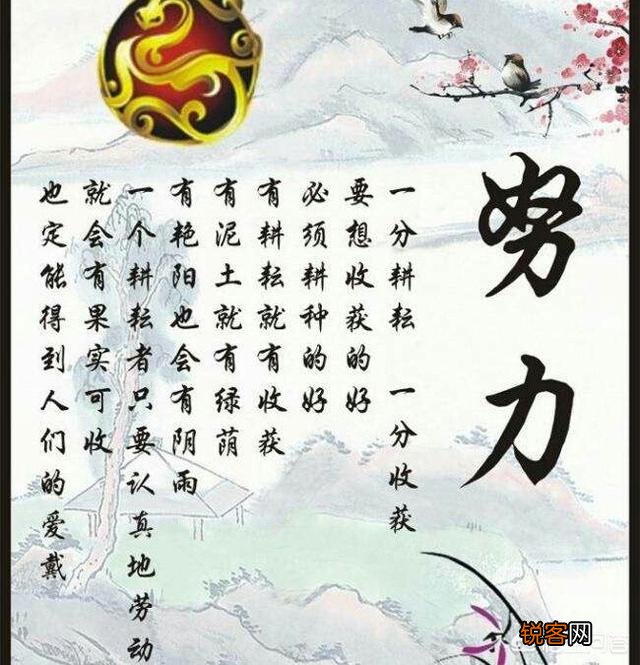 努力
一分耕耘 一分收获
要想收获的好
必须耕种的好
有耕耘就有收获
有泥土就有绿荫
有艳阳也会有阴雨
一个耕耘者只要认真地劳动
就会有果实可收
也定能得到人们的爱戴
锐客网